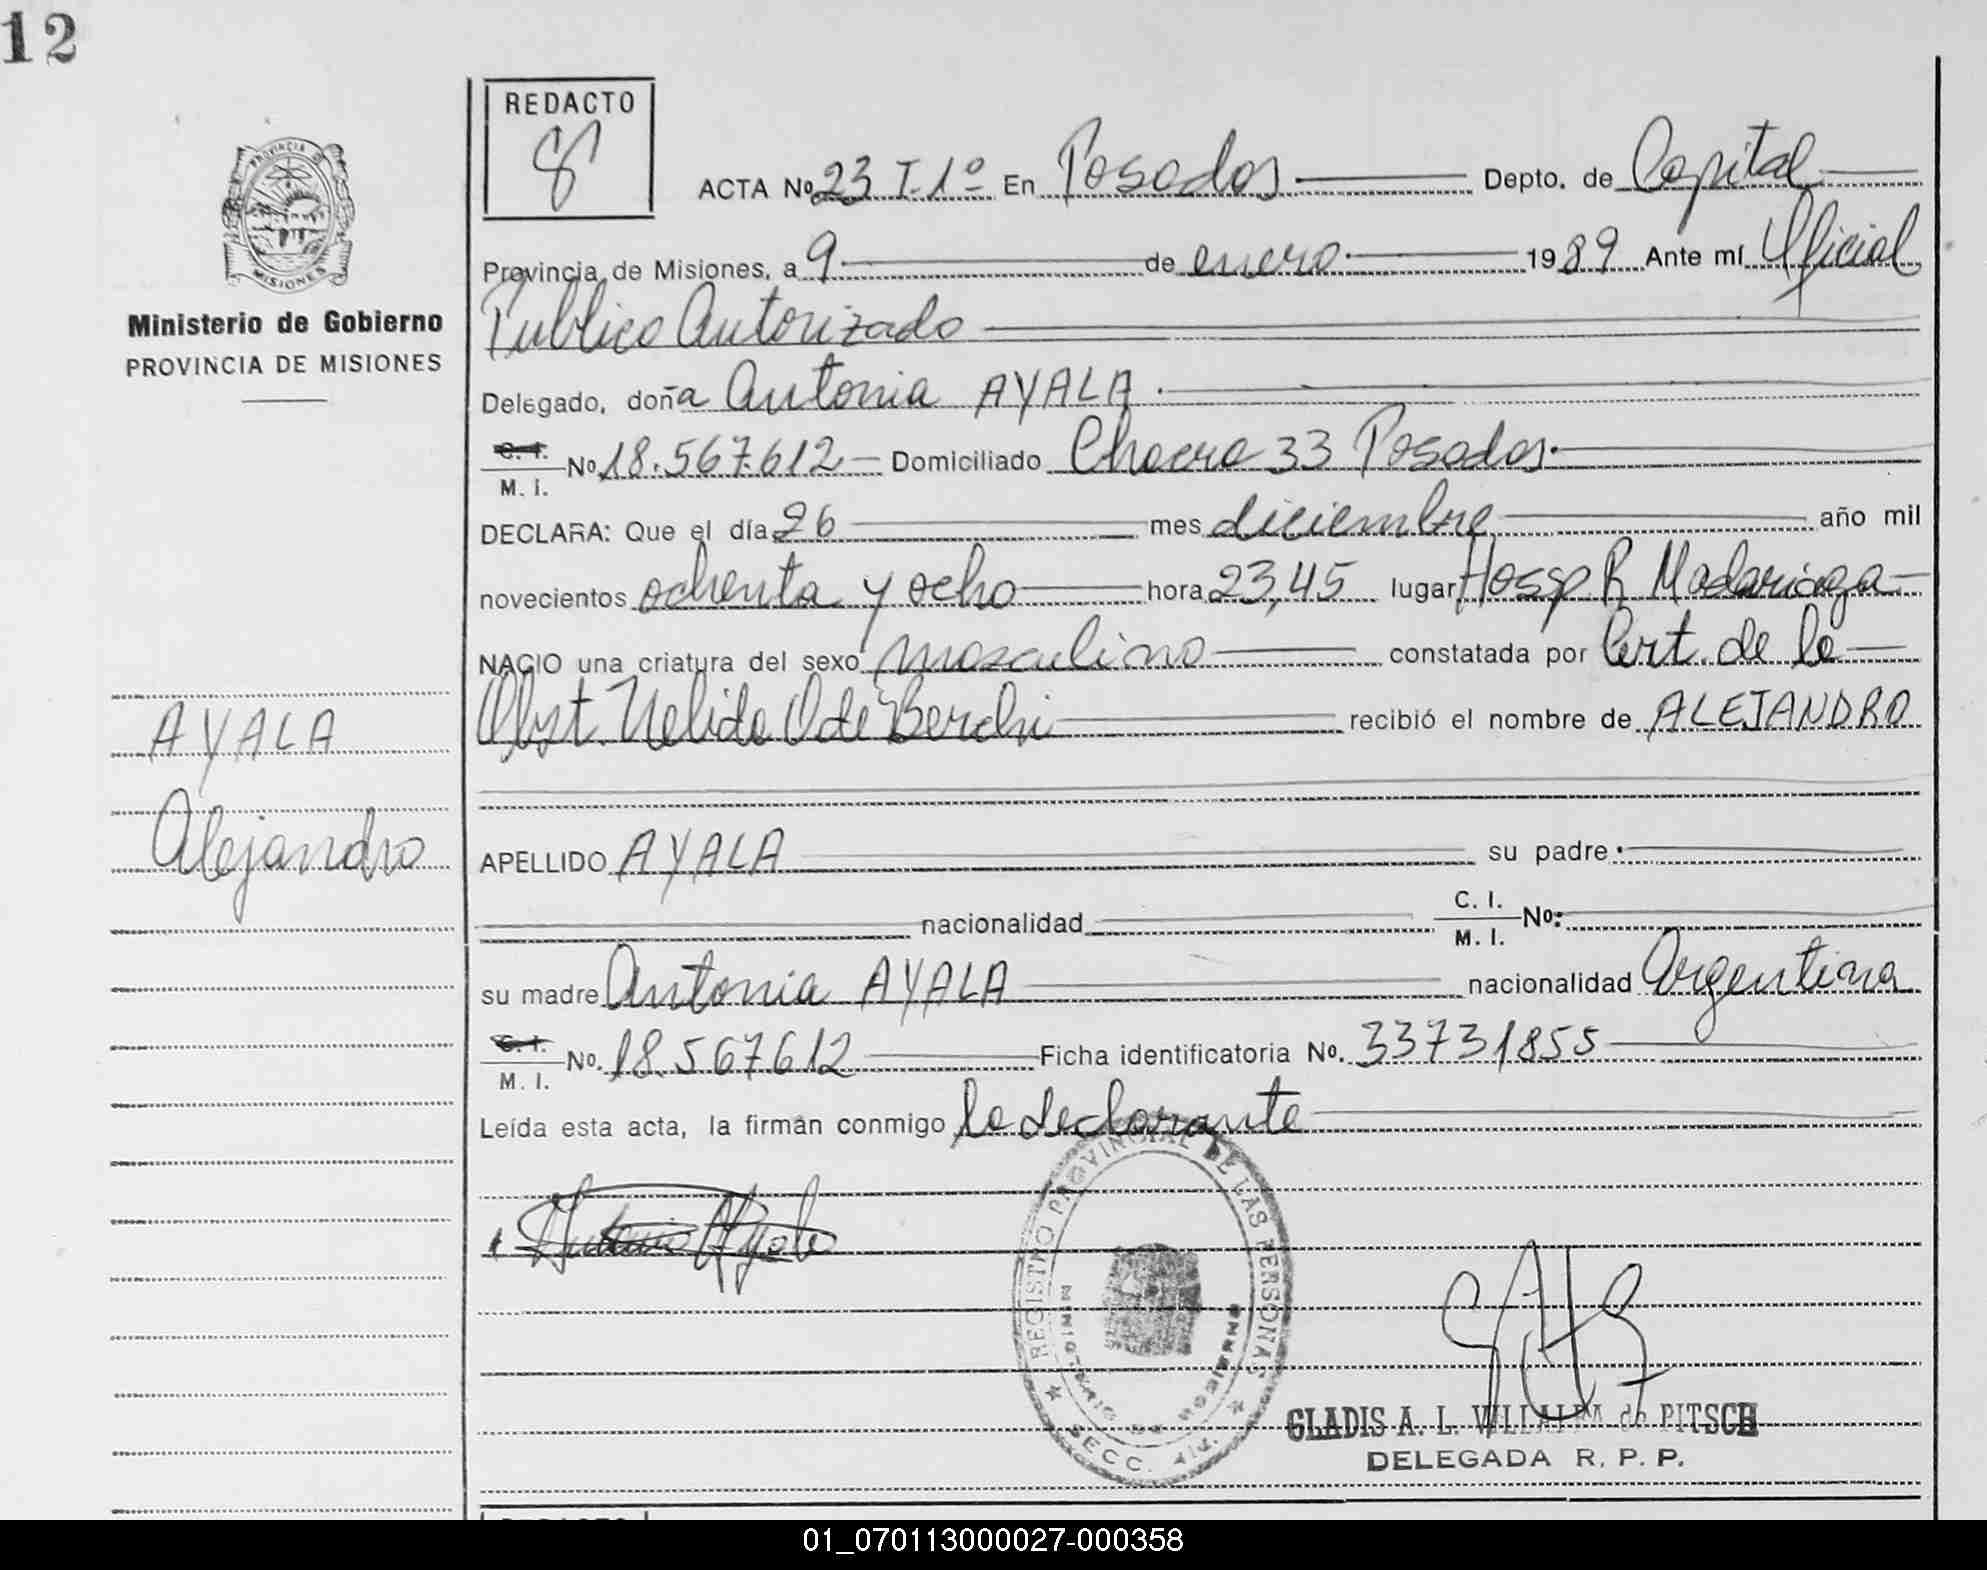 12
REDACTO
ACTA No 23 T. 1º En Posadas Depto. de Capital
PROVINCIA D
MISIONES
Provincia de Misiones, a 9 de enero 1989 Ante mí Oficial
Ministerio de Gobierno
Publico Autorizado
PROVINCIA DE MISIONES
Delegado, doña Antonia AYALA.
C. I.
No 18.567.612 Domiciliado Chacra 33 Posadas.
M. I.
DECLARA: Que el día 26 mes diciembre año mil
novecientos ochenta y ocho hora 23,45 lugar Hosp. R Madariaga
NACIO una criatura del sexo masculino constatada por Cert. de la
Obst. Nelida O de Berchi recibió el nombre de ALEJANDRO
AYALA
Alejandro
APELLIDO AYALA su padre
nacionalidad C. I. No:
M. I.
su madre Antonia AYALA nacionalidad Argentina
C. I.
No. 18.567612 Ficha identificatoria No. 33731855
M. I.
Leída esta acta, la firman conmigo la declarante
REGISTRO PROVINCIAL DE LAS PERSONAS
MINISTERIO DE GOBIERNO
SECC.
Antonia Ayala
GLADIS A. L. VILLALBA de PITSCH
DELEGADA R. P. P.
01_070113000027-000358